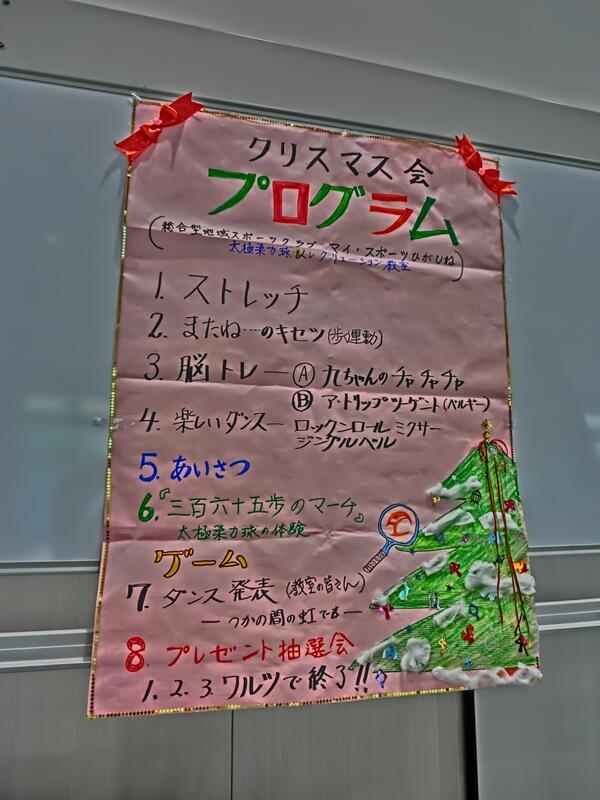 クリスマス会
プログラム
(総合型地域スポーツクラブ マイ・スポーツひがしね
太極柔力球&レクリエーション教室)
1. ストレッチ
2. またね…のキセツ(歩く運動)
3. 脳トレ — Ⓐ 九ちゃんのチャチャチャ
Ⓑ ア・トリップツーゲント(ベルギー)
4. 楽しいダンス— ロックンロールミクサー
ジングルベル
5. あいさつ
6.『三百六十五歩のマーチ』
太極柔力球の体験
ゲーム
7. ダンス発表(教室の皆さん)
—つかの間の虹でも—
8. プレゼント抽選会
1.2.3.ワルツで終了!!